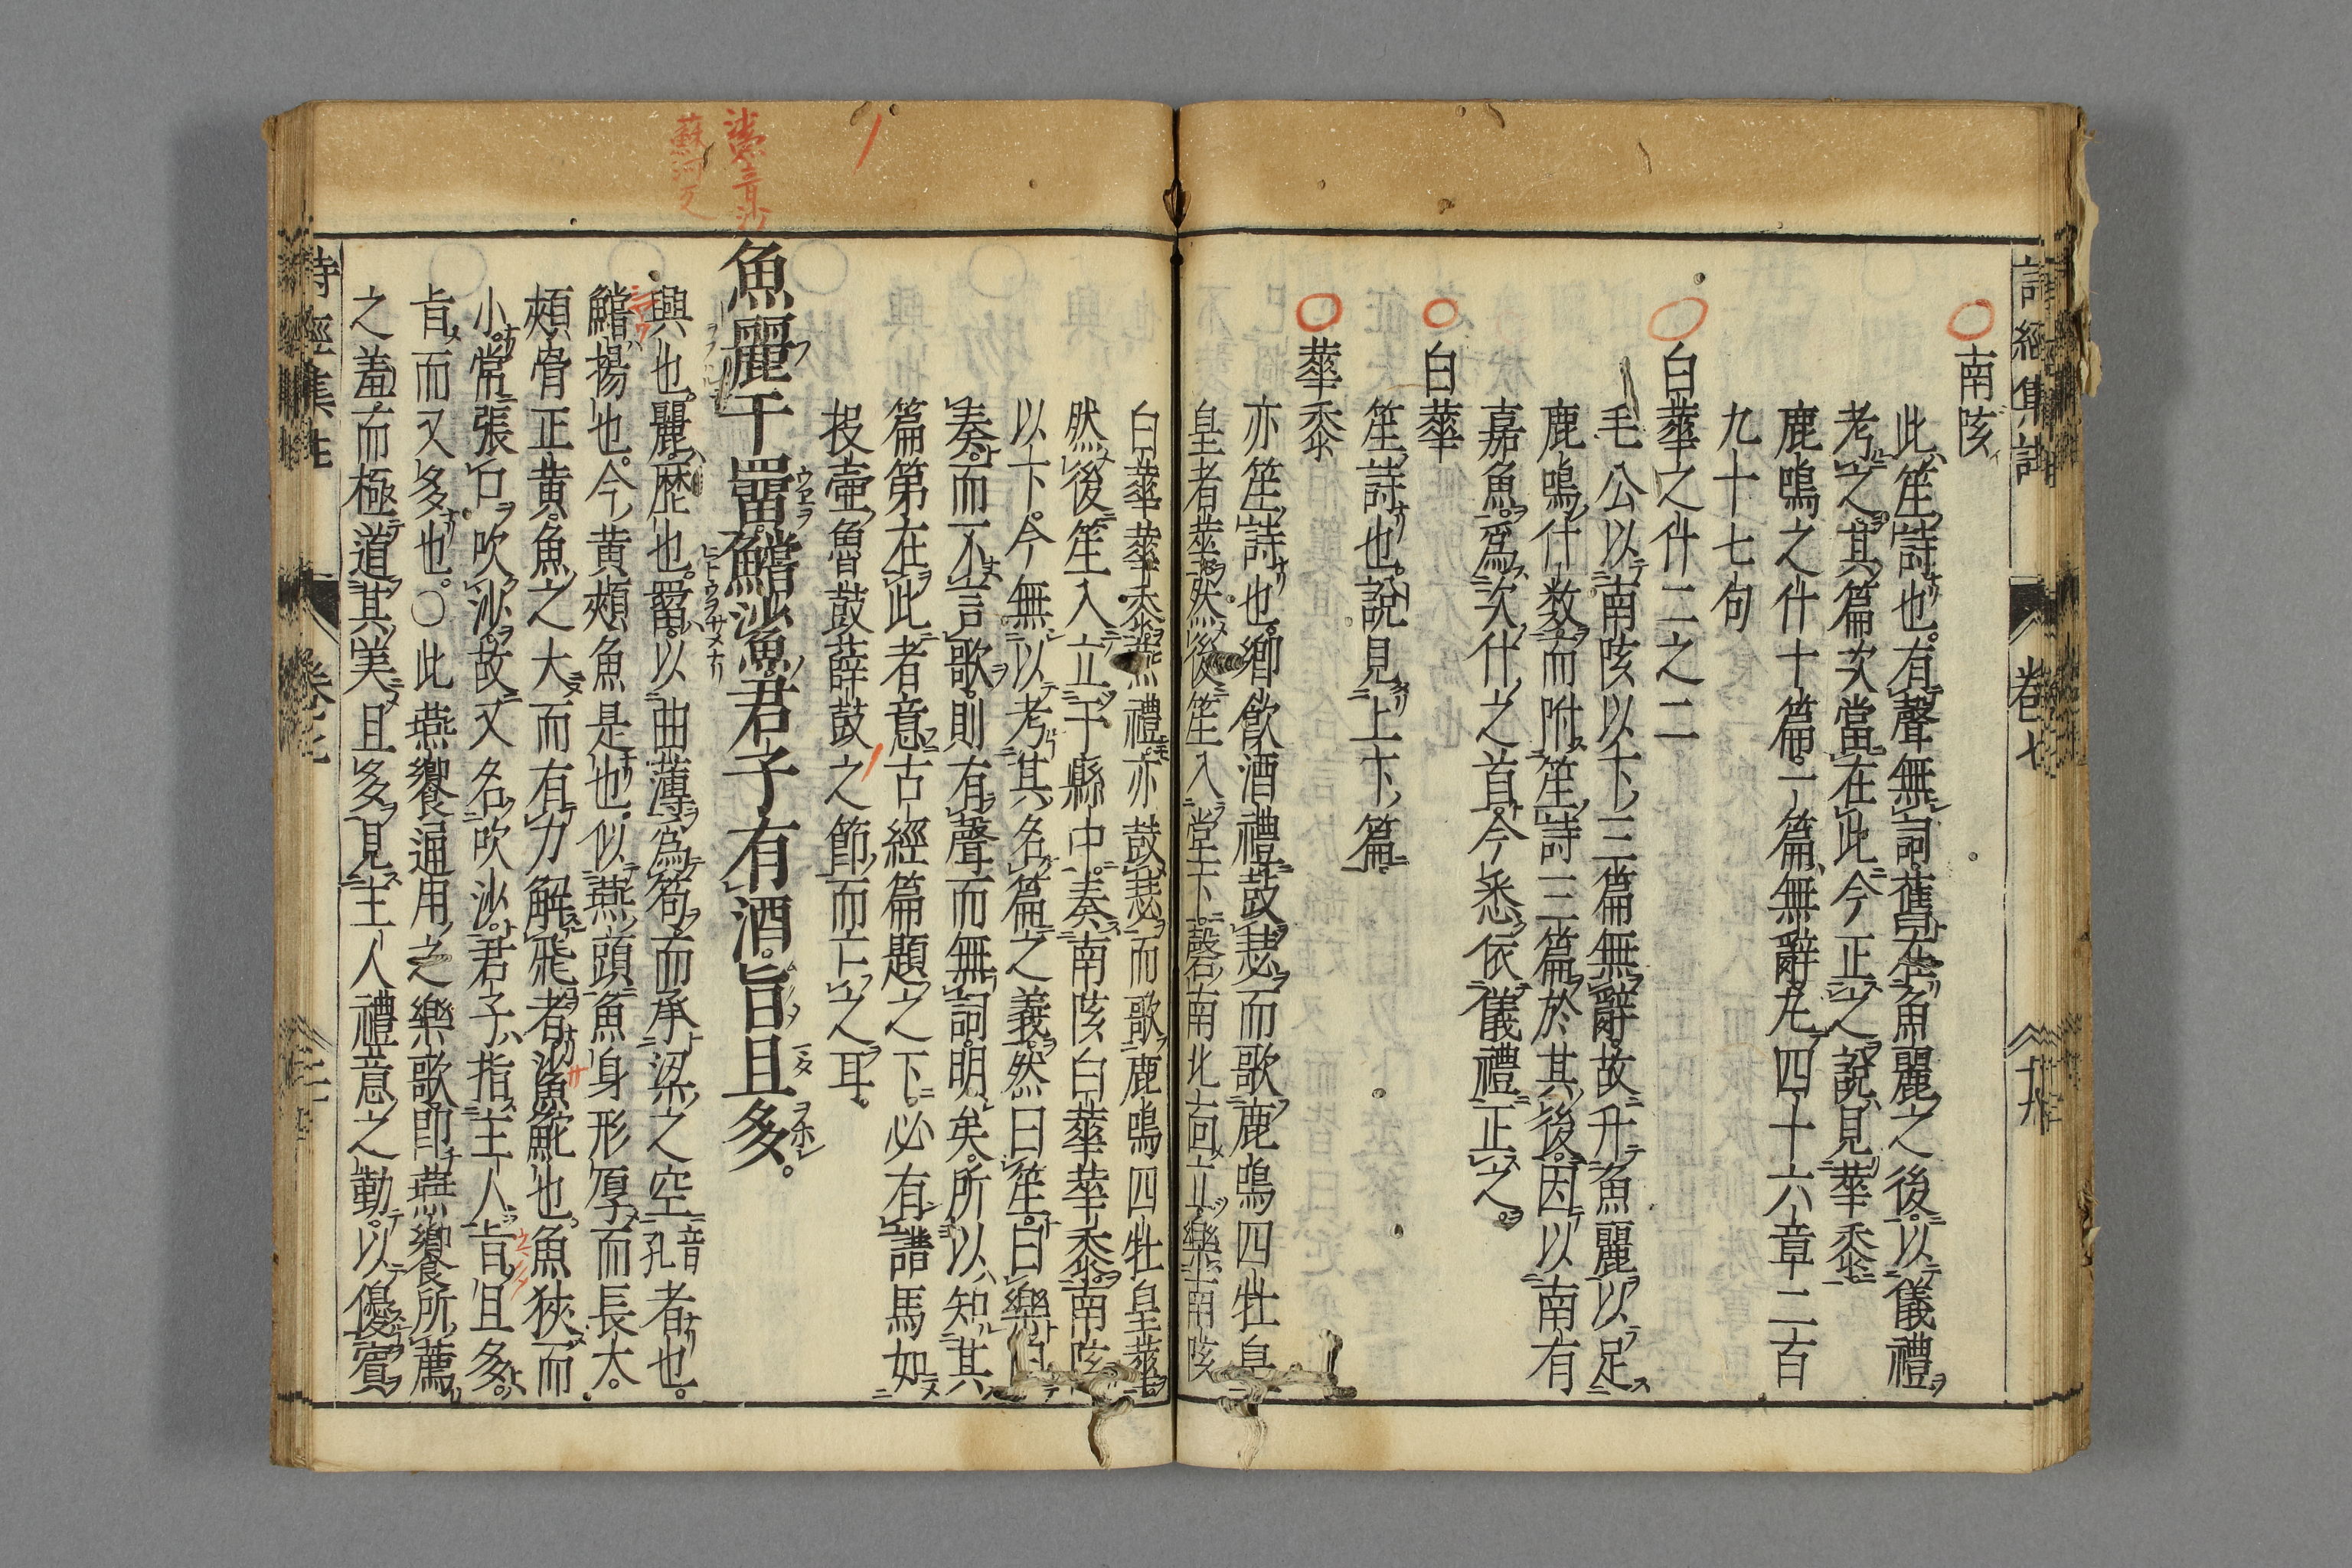 詩經集註 卷七
南陔
此笙詩也有聲無詞舊在魚麗之後以儀禮
考之其篇次當在此今正之說見華黍
鹿鳴之什十篇一篇無辭凡四十六章二百
九十七句
白華之什二之二
毛公以南陔以下三篇無辭故升魚麗以足
鹿鳴什數而附笙詩三篇於其後因以南有
嘉魚爲次什之首今悉依儀禮正之
白華
笙詩也說見上下篇
華黍
亦笙詩也鄉飲酒禮鼓瑟而歌鹿鳴四牡皇
皇者華然後笙入堂下磬南北面立樂南陔
白華華黍燕禮亦鼓瑟而歌鹿鳴四牡皇華
然後笙入立于縣中奏南陔白華華黍南陔
以下今無以考其名篇之義然曰笙曰樂曰
奏而不言歌則有聲而無詞明矣所以知其
篇第在此者意古經篇題之下必有譜焉如
投壺魯鼓薛鼓之節而亡之耳。
魚麗于罶鱨鯊君子有酒旨且多。
興也麗歷也罶以曲薄爲笱而承梁之空音孔者也。
鱨揚也今黃頰魚是也似燕頭魚身形厚而長大。
頰骨正黃魚之大而有力解飛者鯊鮀也魚狹而
小常張口吹沙故又名吹沙君子指主人旨且多
旨而又多也。○此燕饗通用之樂歌即燕饗所薦
之羞而極道其美且多見主人禮意之勤以優賓
詩經集註